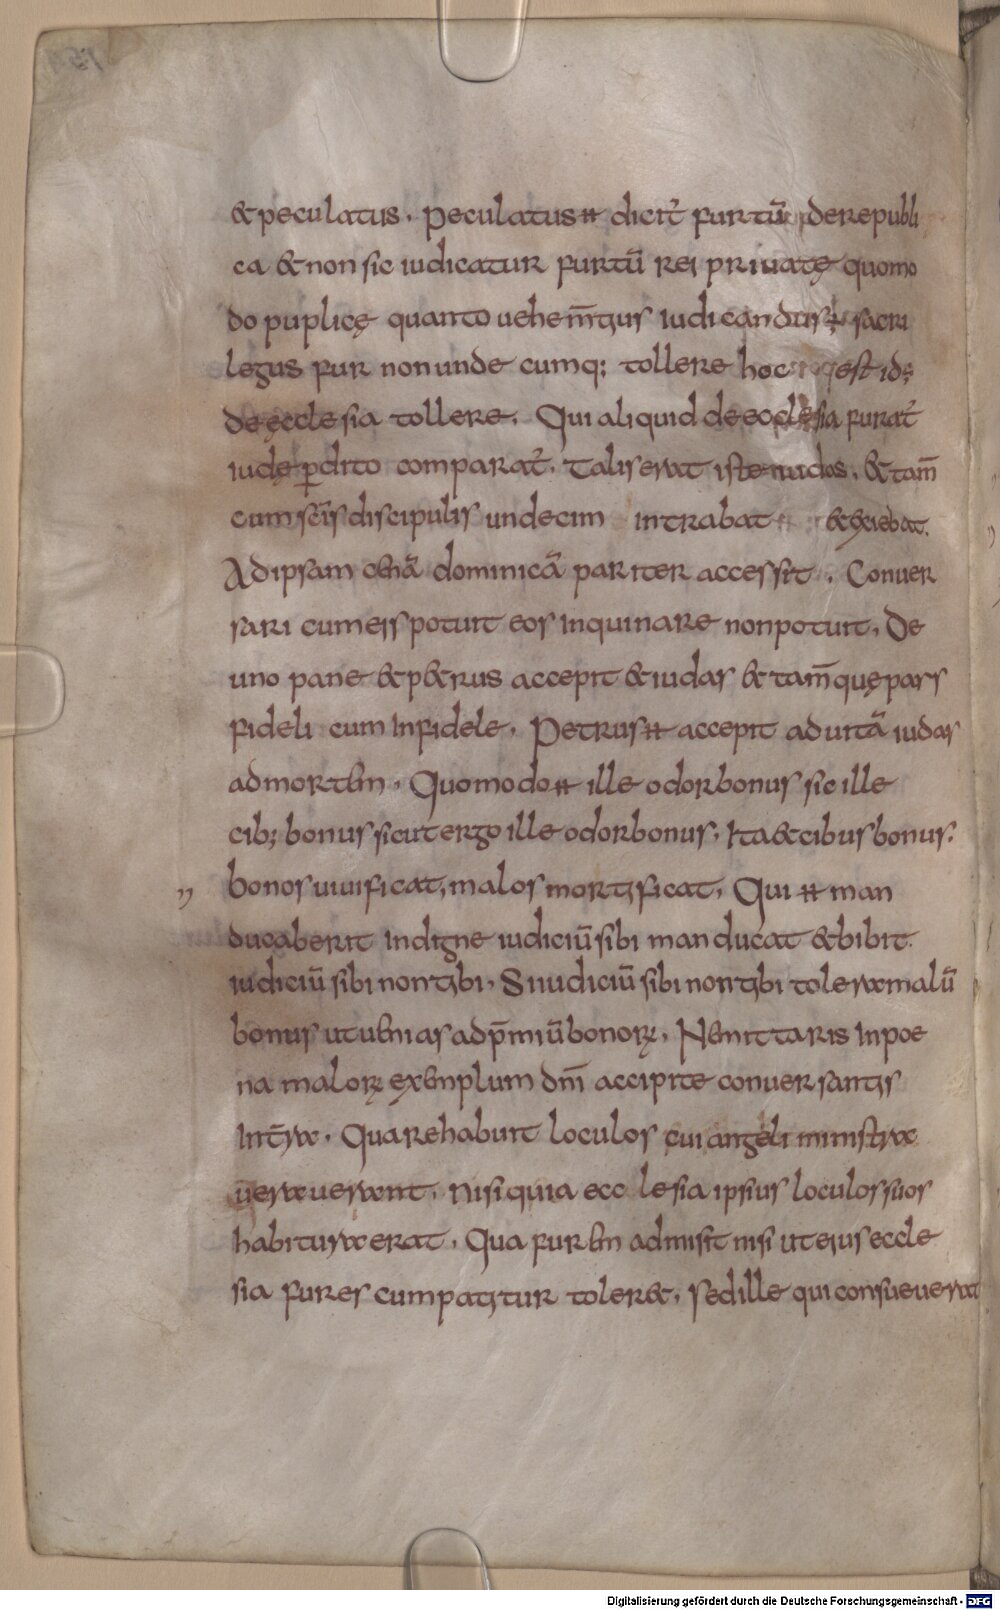 & peculatus. Peculatus ħ dicit̄ furtū de republi
ca & non sic iudicatur furtū rei priuatę quomo
do puplicę quanto uehem̄tius iudicandus ÷ sacri
legus fur non unde cumq; tollere hoc est idę
de ęcclesia tollere. Qui aliquid de ecclesia furat̄
iudę p̱dito comparat̄. Talis erat iste iudas. & tam̄
cum sc̄is discipulis undecim intrabat & exiebat.
Ad ipsam cenā dominicā pariter accessit. Conuer
sari cum eis potuit eos inquinare non potuit. De
uno pane & p&rus accepit & iudas & tam̄ quę pars
fideli cum infidele. Petrus ħ accepit ad uitā iudas
ad mortem. Quomodo ħ ille odor bonus sic ille
cib; bonus sicut ergo ille odor bonus. Ita & cibus bonus.
bonos uiuificat, malos mortificat. Qui ħ man
ducaberit indigne iudiciū sibi manducat & bibit.
iudiciū sibi non tibi. Si iudiciū sibi non tibi tolera malū
bonus ut uenias ad p̄miū bonorꝝ. Ne mittaris in poe
na malorꝝ exemplum dnī accipite conuersantis
in t̄ra. Quare habuit loculos cui angeli ministra
uerauerant. nisi quia ecclesia ipsius loculos suos
habitura erat. Qua furem admisit nisi ut eius eccle
sia fures cum patitur toler&. sed ille qui consueuerat
Digitalisierung gefördert durch die Deutsche Forschungsgemeinschaft - DFG